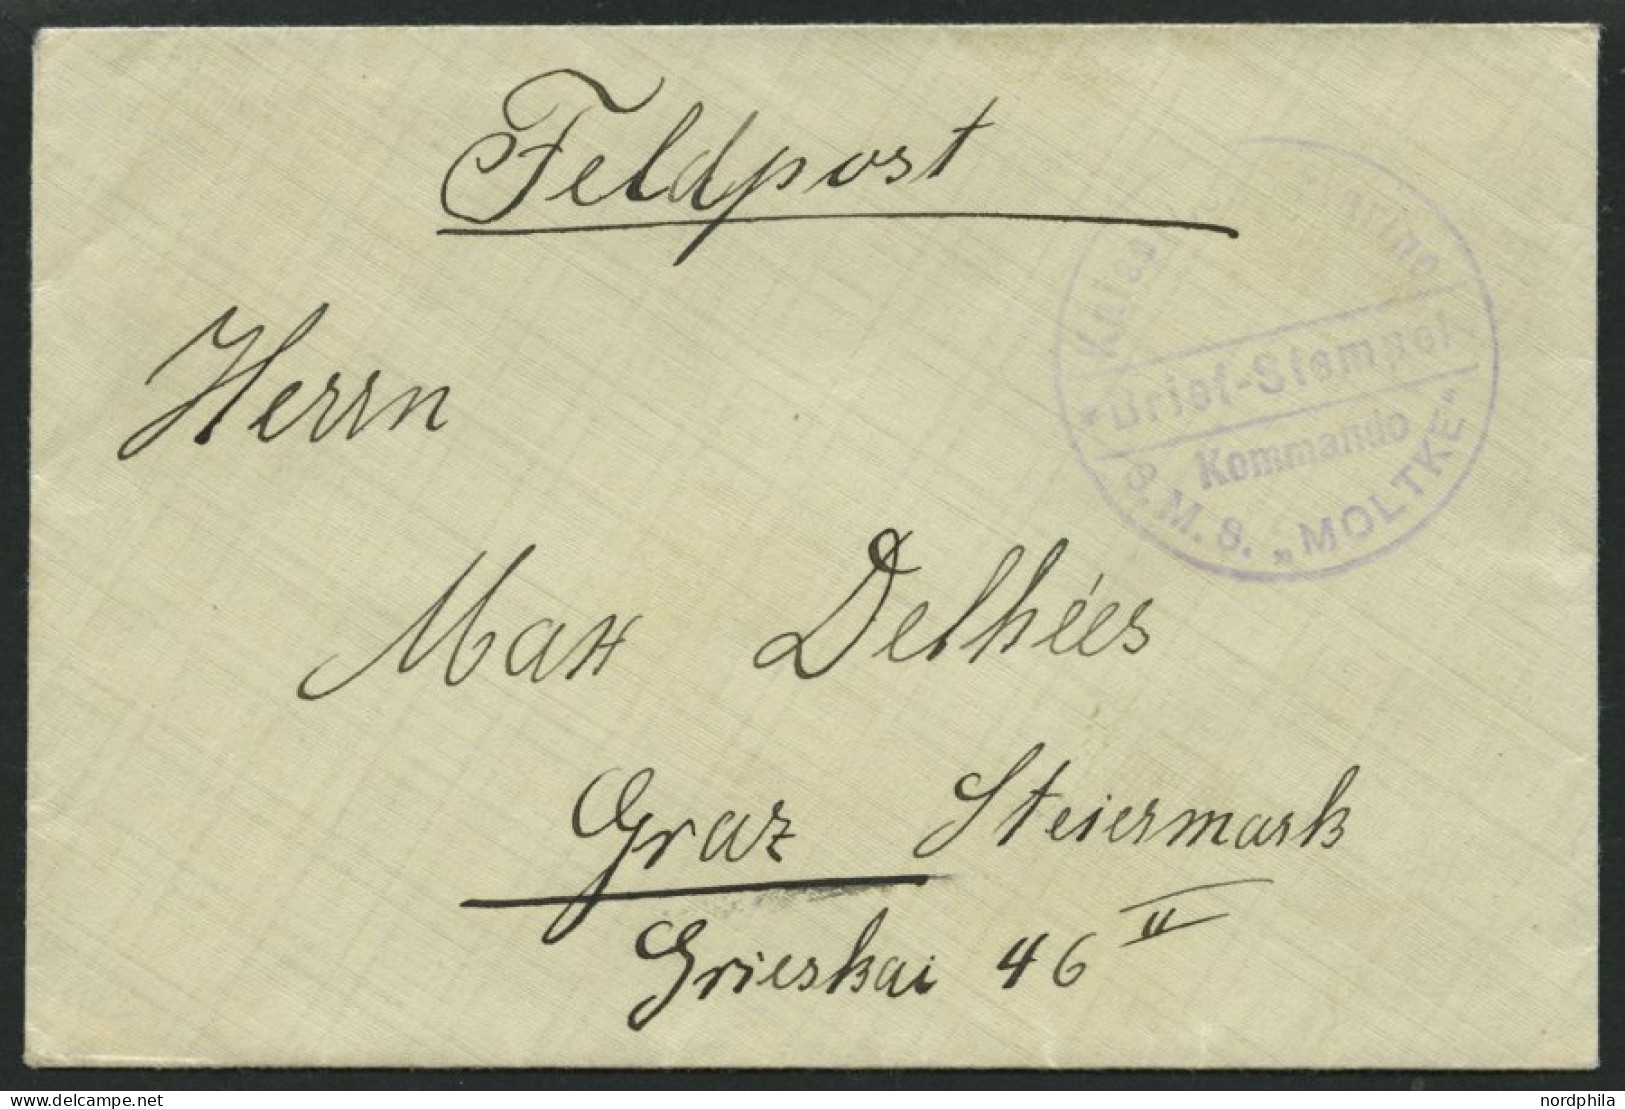 Feldpost
Kaiserliche Marine
Brief-Stempel
Kommando
S. M. S. „MOLTKE"
Herrn
Max Delhées
Graz Steiermark
Grieskai 46 II
nordphila